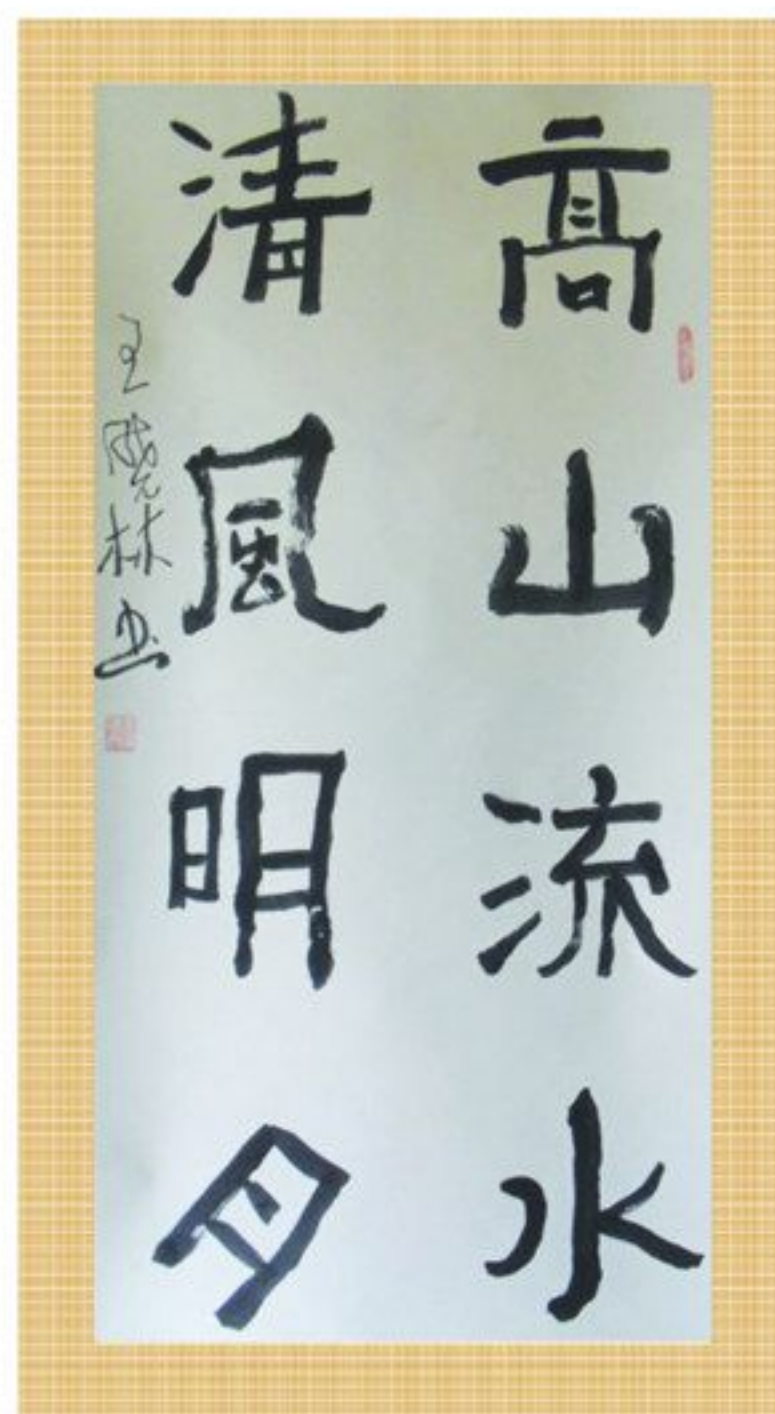 高山流水
清風明月
王晓林书